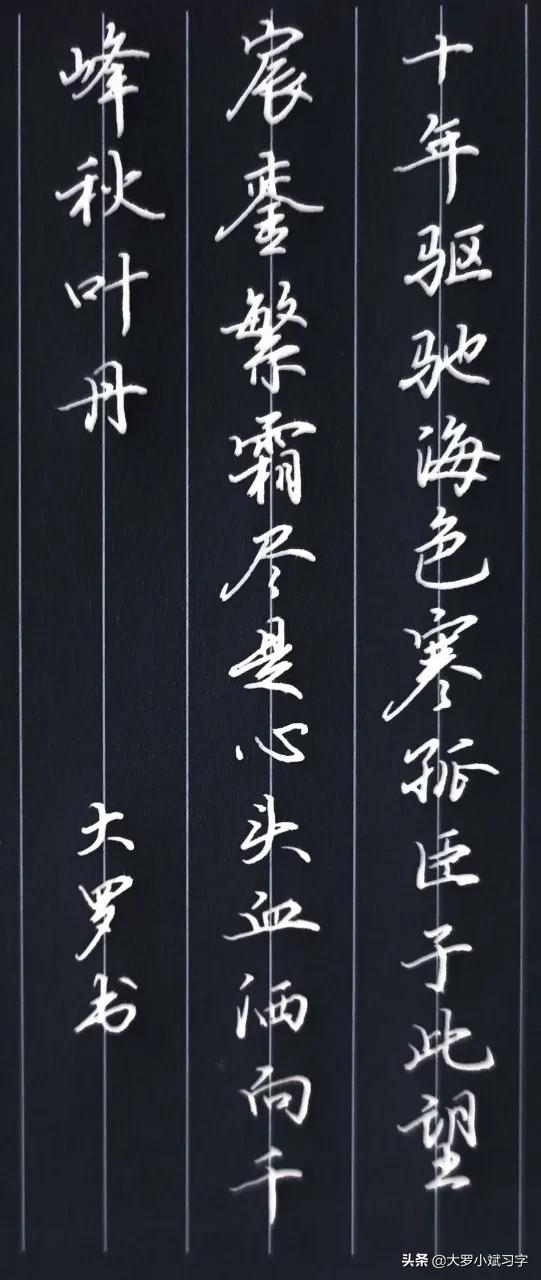 十年驱驰海色寒孤臣于此望
宸銮繁霜尽是心头血洒向千
峰秋叶丹
大罗书
头条 @大罗小斌习字